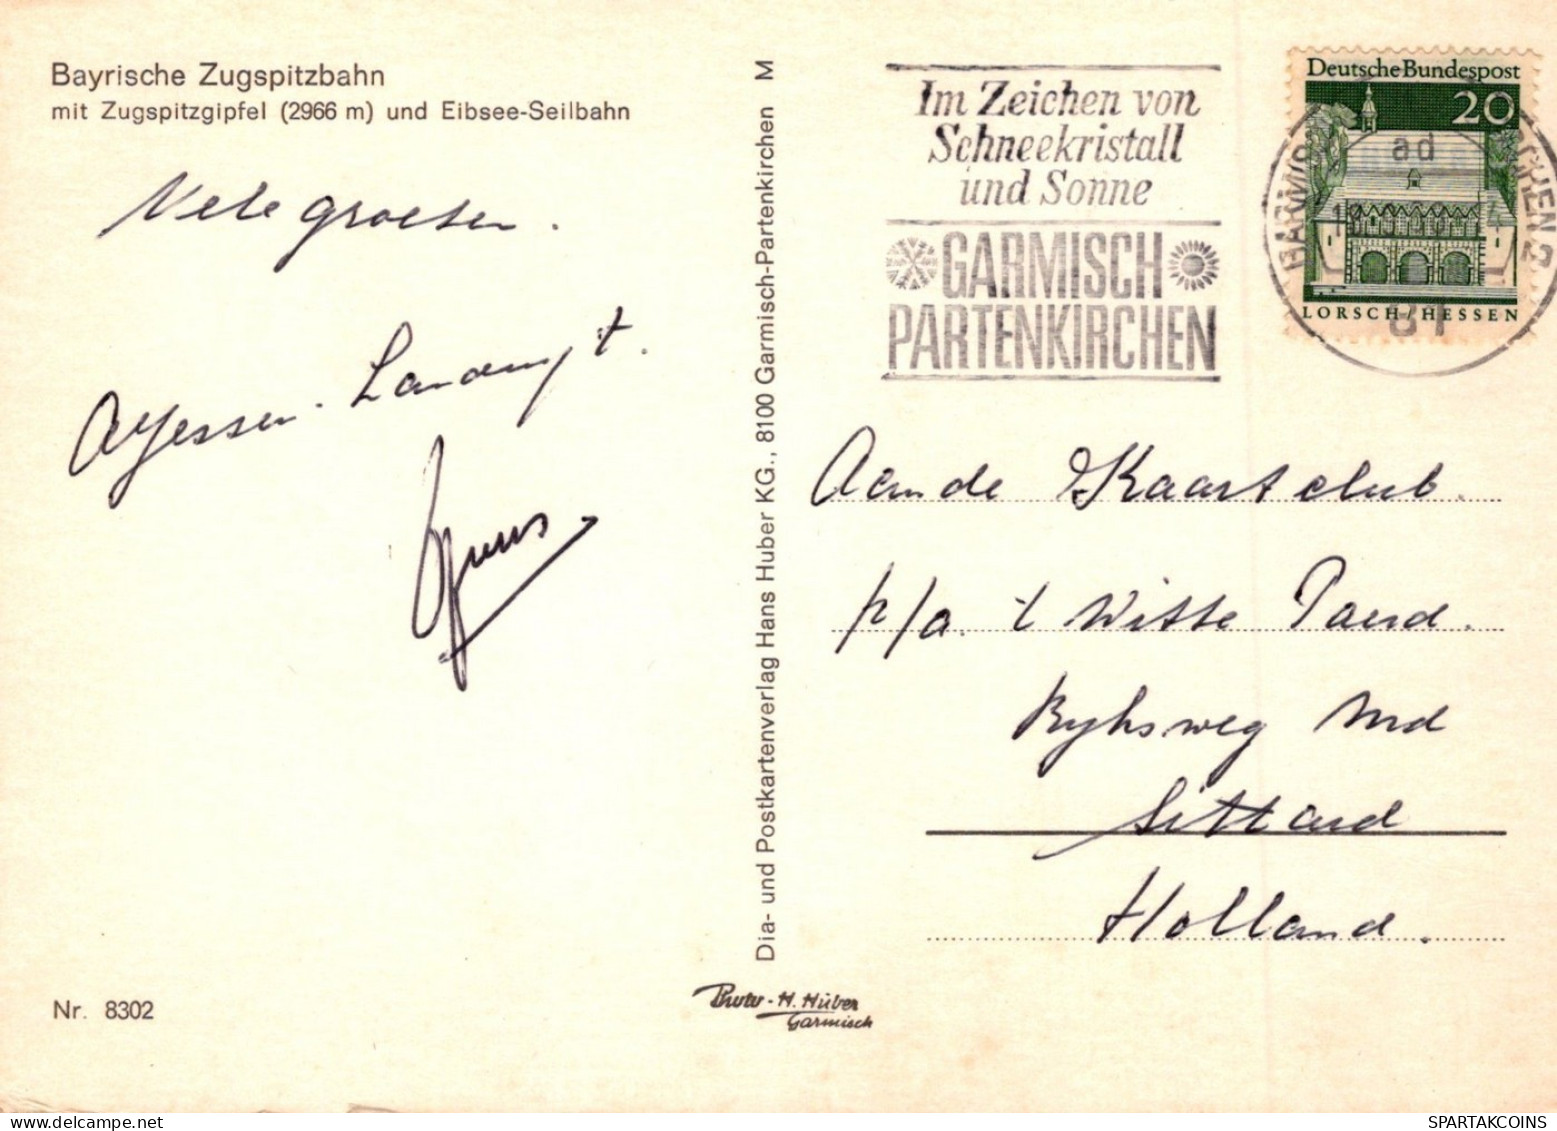 Bayrische Zugspitzbahn
mit Zugspitzgipfel (2966 m) und Eibsee-Seilbahn
Vele groeten.
Dia- und Postkartenverlag Hans Huber KG., 8100 Garmisch-Partenkirchen M
Im Zeichen von
Schneekristall
und Sonne
GARMISCH
PARTENKIRCHEN
Deutsche Bundespost
20
ad
LORSCH/HESSEN
81
Aan de Kaartclub.
p/a. 't Witte Paerd.
Ryksweg Nrd
Sittard
Holland.
Nr. 8302
Photo-H. Huber
Garmisch
SPARTAKCOINS